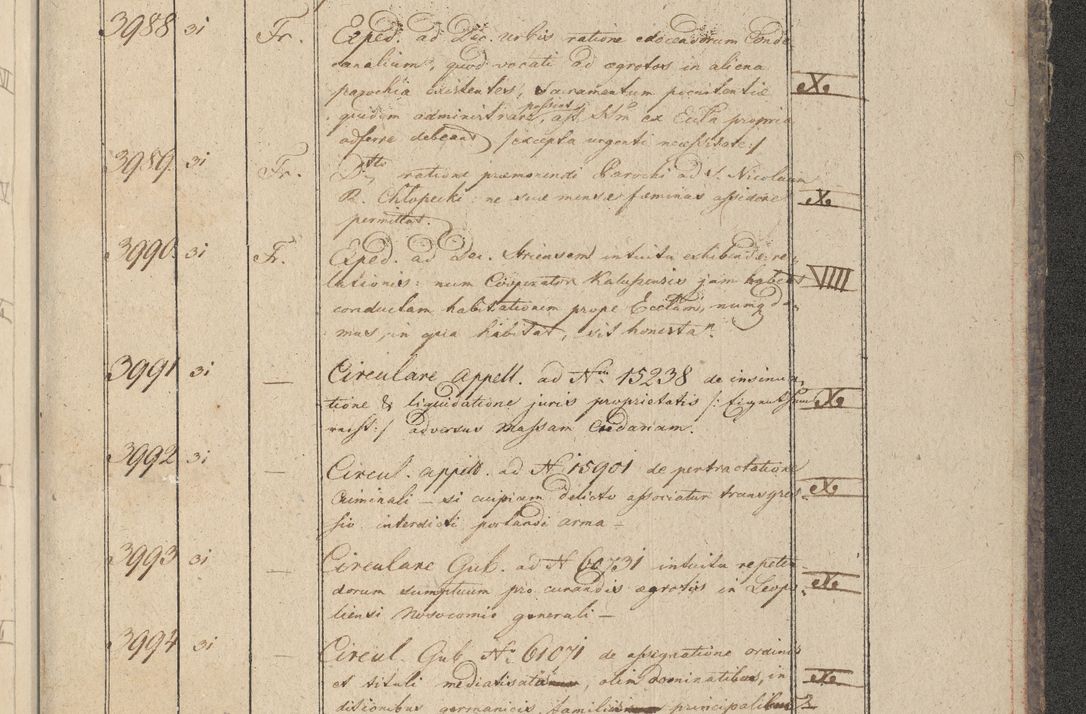 3988 31 Fr. Exped. ad Dec. Urbis ratione edocendorum Conde
canalium, quod vocati ad ægrotos in aliena
parochia existentes, Sacramentum pœnitentiæ X.
quidem administrare possint, ast Ssm ex Eccla propria
adferre debeant /: excepta urgenti necessitate :/
3989. 31 Fr. Dtto ratione præmonendi Parochi ad S. Nicolaum
R. Chłopecki: ne suæ mensæ fœminas assidere X.
permittat.
3990. 31 Fr. Exped. ad Dec. intuitu exhibendæ re
lationis: num Cooperator Kalusensis jam habeat VIIII
conductam habitationem prope Ecclam, numq do
mus, in qua habitat, sit honesta.
3991 31 — Circulare Appell. ad Nrm 15238 de insinua
tione & liquidatione juris proprietatis /: Eigenthums X.
recht :/ adversus Massam Cridariam.
3992 31 — Circul. Appell. ad N 15901 de pertractatione
Criminali — si cuipiam delicto associatur transgres X.
sio interdicti portandi arma —
3993 31 — Circulare Gub. ad N 60731 intuitu repeten
dorum sumptuum pro curandis ægrotis in Leopo X.
liensi Nosocomio generali —
3994 31 — Circul. Gub. Nro 61071 de assignatione ordinis
et tituli mediatisatis, olim dominatibus, in X.
ditionibus germanicis principalibus